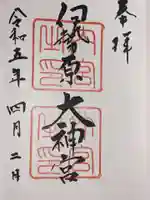 奉拝
伊勢原
大神宮
令和五年 四月 二日